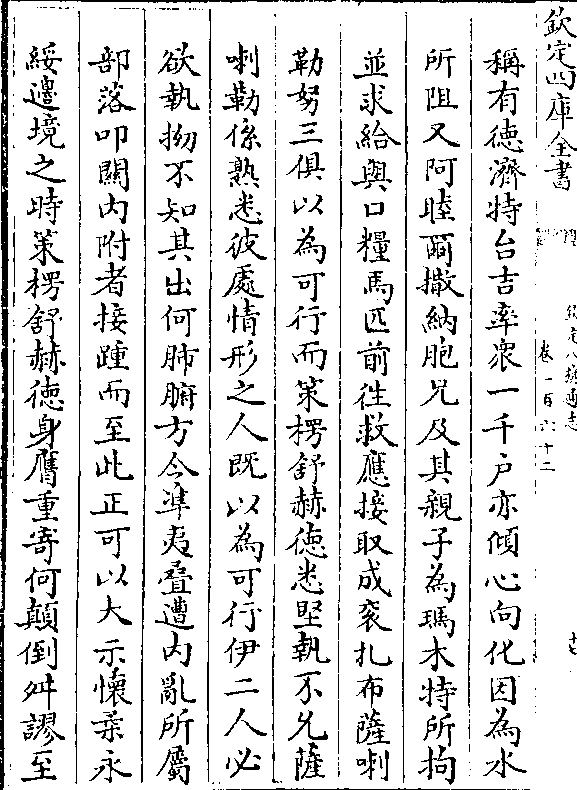 欽定四庫全書
欽定八旗通志
卷一百六十二
稱有德濟特台吉率衆一千户亦傾心向化因為水
所阻又阿睦爾撒納胞兄及其親子為瑪木特所拘
並求給與口糧馬匹前往救應接取成衮扎布薩喇
勒努三俱以為可行而策楞舒赫德悉堅執不允薩
喇勒係熟悉彼處情形之人既以為可行伊二人必
欲執拗不知其出何肺腑方今凖夷叠遭内亂所屬
部落叩關内附者接踵而至此正可以大示懷柔永
綏邊境之時策楞舒赫德身膺重寄何顛倒舛謬至